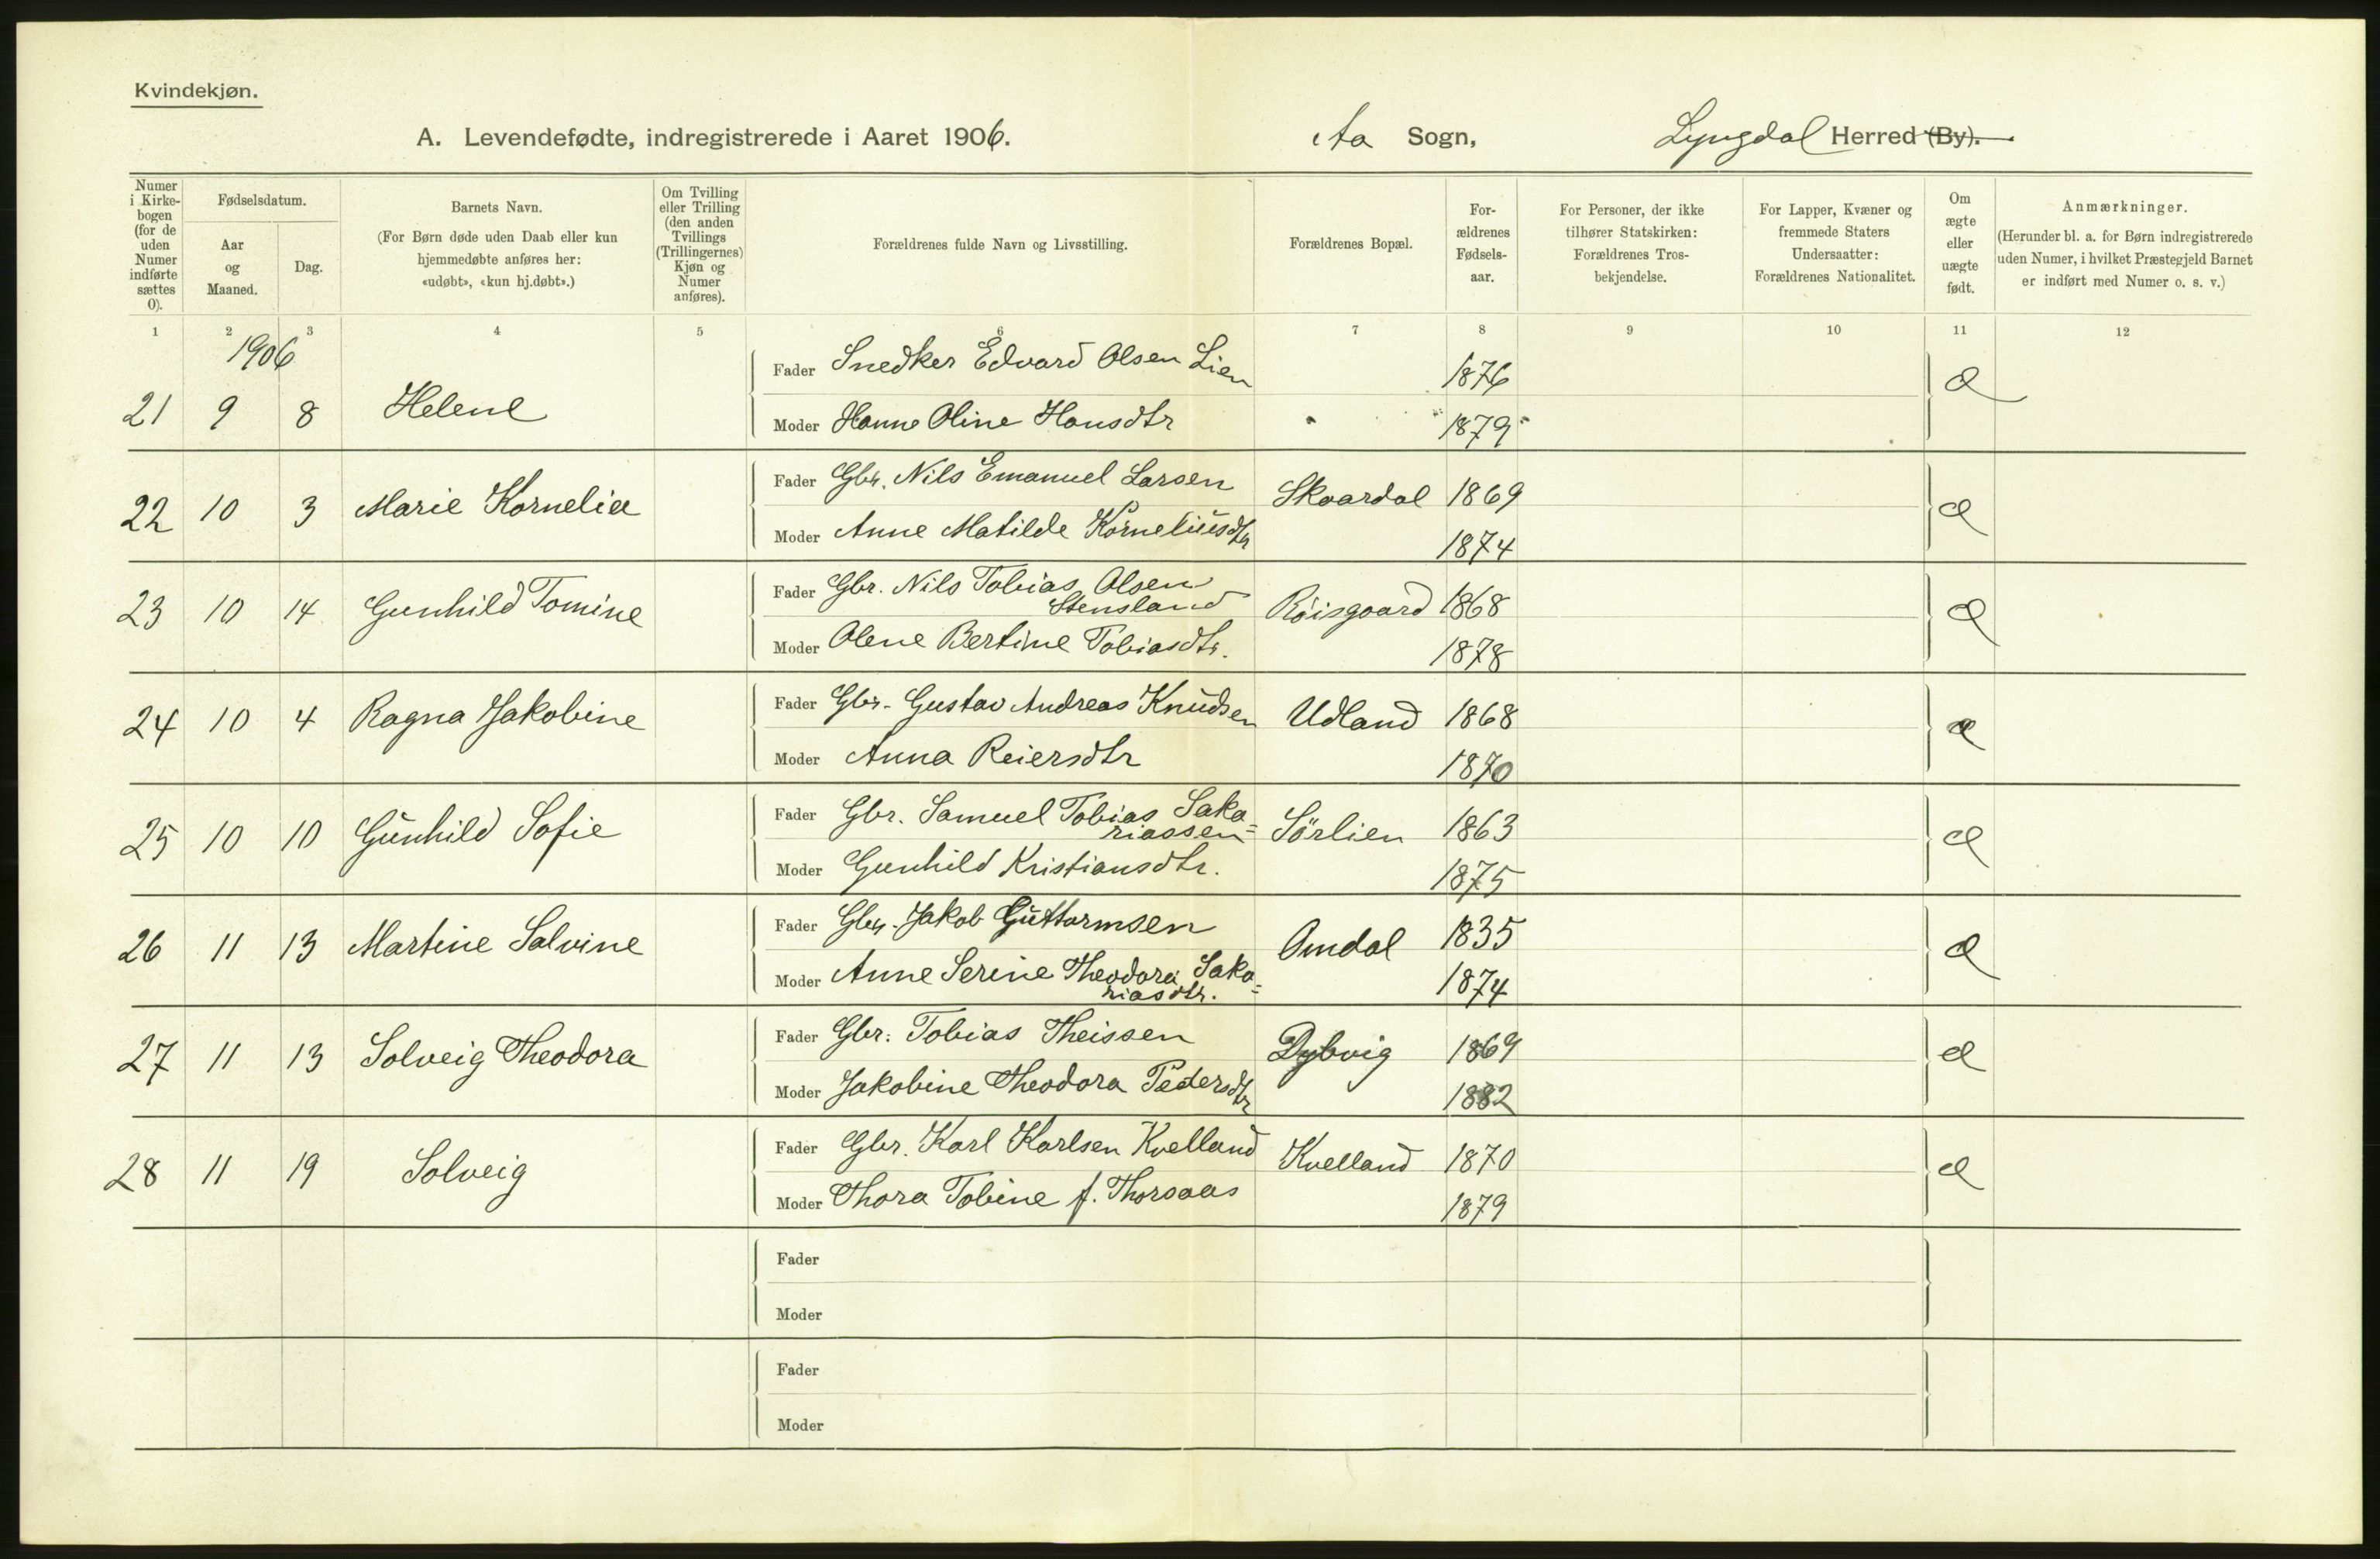 Kvindekjøn.
A. Levendefødte, indregistrerede i Aaret 1906. Aa Sogn, Lyngdal Herred (By).
Numer i Kirkebogen (for de uden Numer indførte sættes 0).
Fødselsdatum.
Aar og Maaned.
Dag.
Barnets Navn.
(For Børn døde uden Daab eller kun hjemmedøbte anføres her: «udøbt», «kun hj.døbt».)
Om Tvilling eller Trilling (den anden Tvillings (Trillingernes) Kjøn og Numer anføres).
Forældrenes fulde Navn og Livsstilling.
Forældrenes Bopæl.
Forældrenes Fødselsaar.
For Personer, der ikke tilhører Statskirken: Forældrenes Trosbekjendelse.
For Lapper, Kvæner og fremmede Staters Undersaatter: Forældrenes Nationalitet.
Om ægte eller uægte født.
Anmærkninger.
(Herunder bl. a. for Børn indregistrerede uden Numer, i hvilket Præstegjeld Barnet er indført med Numer o. s. v.)
1 2 3 4 5 6 7 8 9 10 11 12
1906
21 9 8 Helene Fader Snedker Edvard Olsen Lien 1876 æ
Moder Hanne Oline Hansdtr 1879
22 10 3 Marie Kornelia Fader Gbr. Nils Emanuel Larsen Skaardal 1869 æ
Moder Anne Matilde Korneliusdtr 1874
23 10 14 Gunhild Tomine Fader Gbr. Nils Tobias Olsen Stensland Röisgaard 1868 æ
Moder Olene Bertine Tobiasdtr. 1878
24 10 4 Ragna Jakobine Fader Gbr. Gustav Andreas Knudsen Udland 1868 æ
Moder Anna Reiersdtr 1870
25 10 10 Gunhild Sofie Fader Gbr. Samuel Tobias Saka=
riassen Sörlien 1863 æ
Moder Gunhild Kristiansdtr. 1875
26 11 13 Martine Salvine Fader Gbr. Jakob Guttormsen Omdal 1835 æ
Moder Anne Serine Theodora Saka=
riasdtr. 1874
27 11 13 Solveig Theodora Fader Gbr: Tobias Theissen Dybvig 1869 æ
Moder Jakobine Theodora Pedersdtr 1882
28 11 19 Solveig Fader Gbr. Karl Karlsen Kvelland Kvelland 1870 æ
Moder Thora Tobine f. Thorsaas 1879
Fader
Moder
Fader
Moder